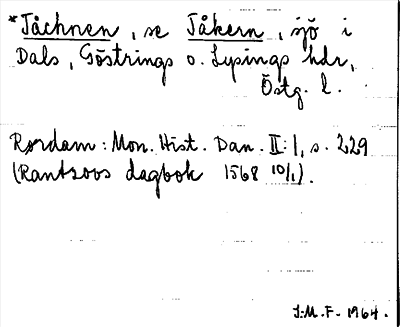 *Tåchnen, se Tåkern, sjö i
Dals, Göstrings o. Lysings hdr,
Östg. l.
Rørdam: Mon. Hist. Dan. II:1, s. 229
(Rantzovs dagbok 1568 10/1).
J.M.F. 1964.